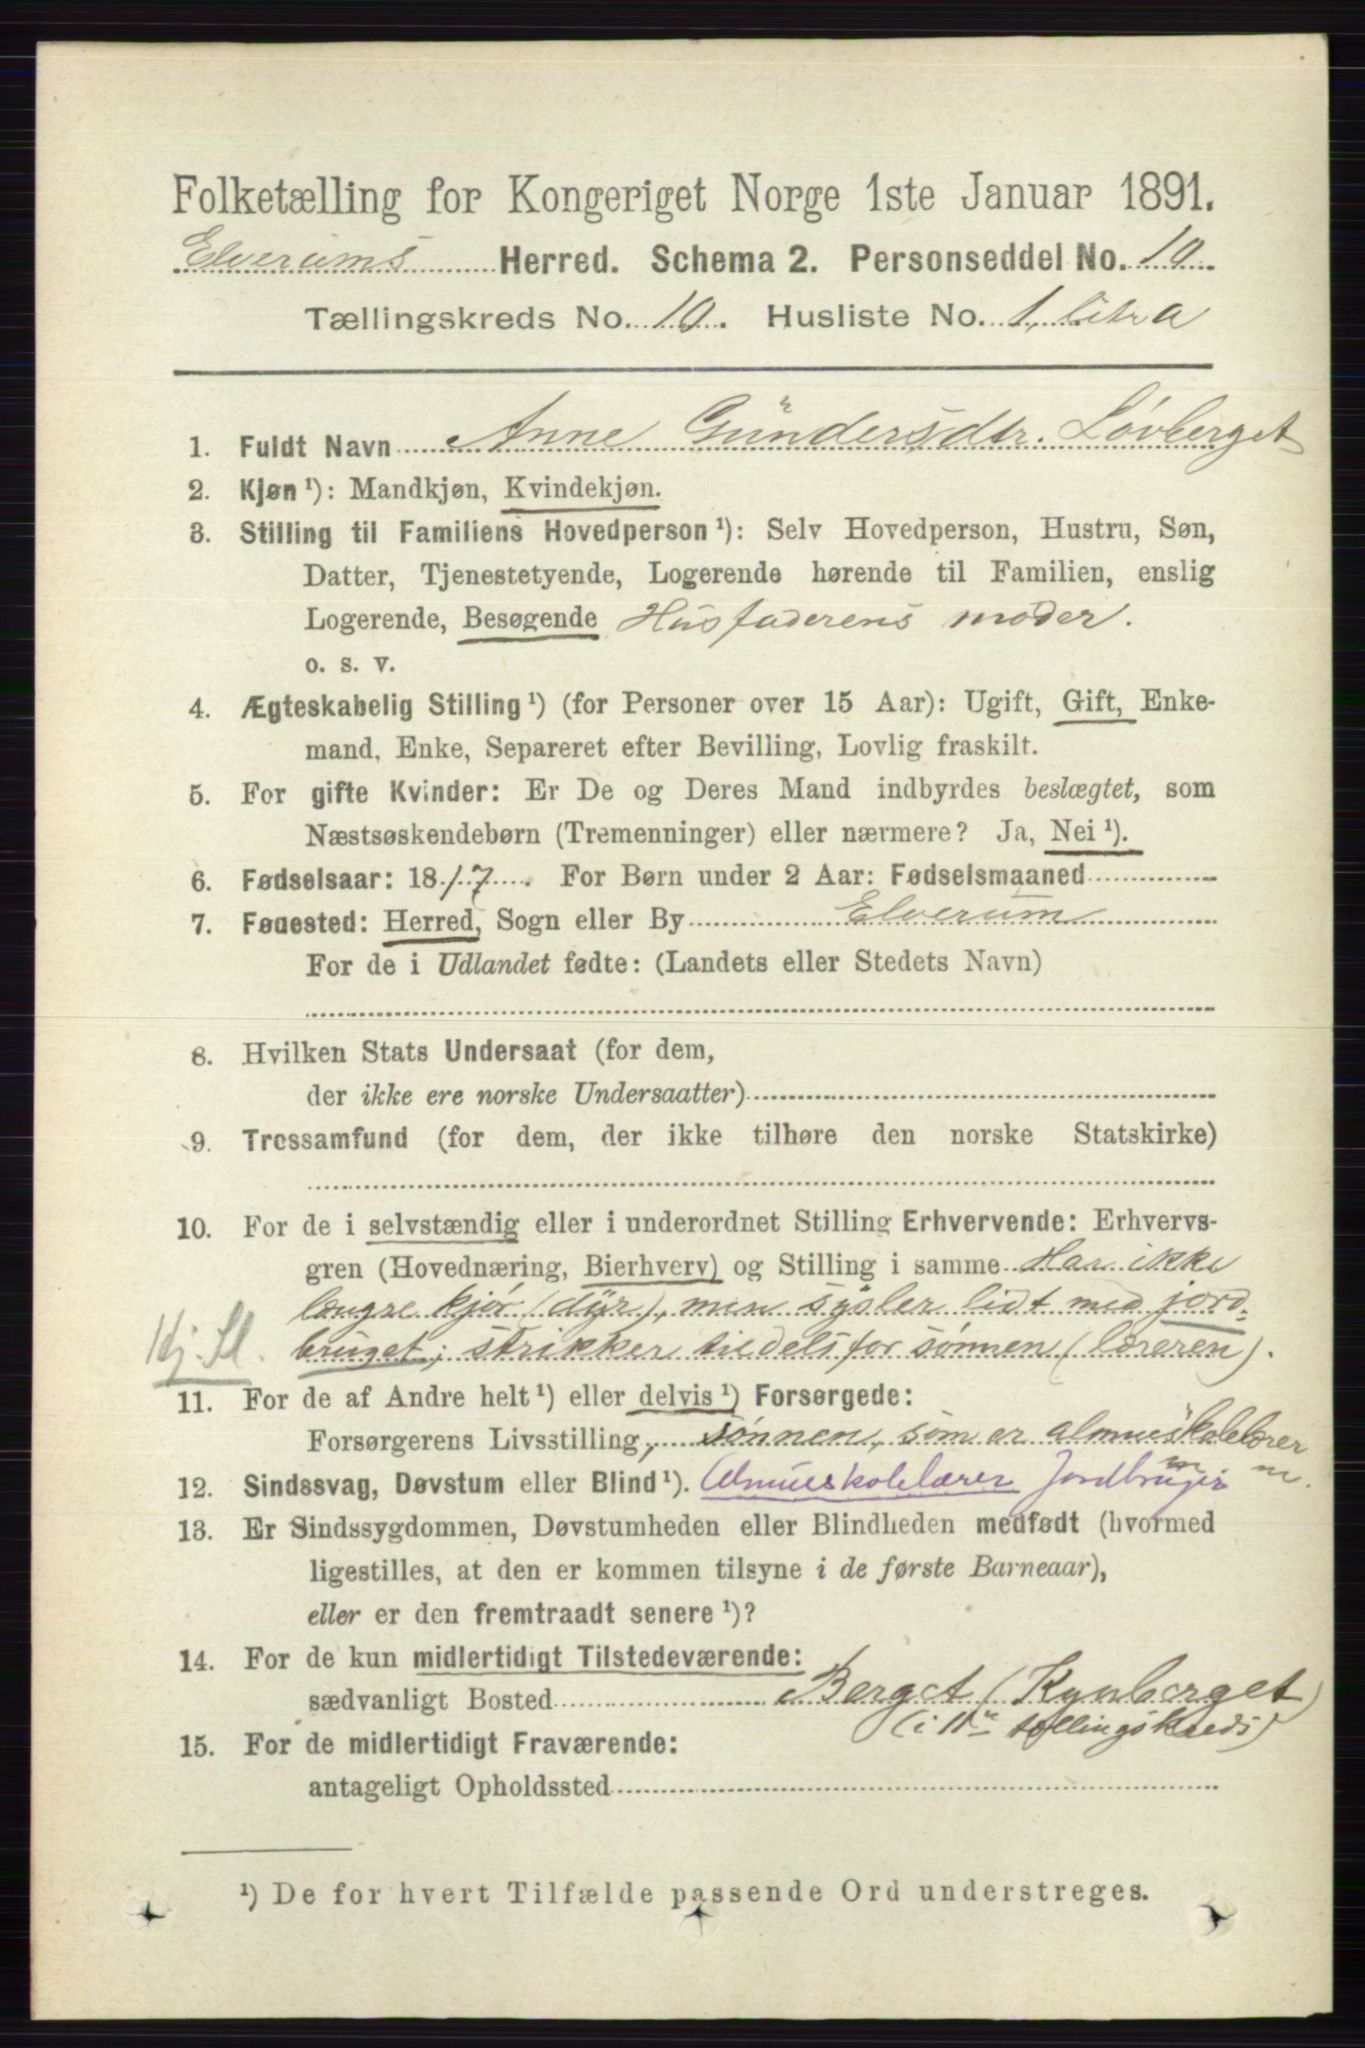 Folketælling for Kongeriget Norge 1ste Januar 1891.
Elverums Herred. Schema 2. Personseddel No. 10.
Tællingskreds No. 10. Husliste No. 1, litra a
1. Fuldt Navn Anne Gündersdtr. Løvberget
2. Kjøn ¹): Mandkjøn, Kvindekjøn.
3. Stilling til Familiens Hovedperson ¹): Selv Hovedperson, Hustru, Søn,
Datter, Tjenestetyende, Logerende hørende til Familien, enslig
Logerende, Besøgende Husfaderens moder.
o. s. v.
4. Ægteskabelig Stilling ¹) (for Personer over 15 Aar): Ugift, Gift, Enke-
mand, Enke, Separeret efter Bevilling, Lovlig fraskilt.
5. For gifte Kvinder: Er De og Deres Mand indbyrdes beslægtet, som
Næstsøskendebørn (Tremenninger) eller nærmere? Ja, Nei ¹).
6. Fødselsaar: 1817. For Børn under 2 Aar: Fødselsmaaned
7. Føuested: Herred, Sogn eller By Elverum
For de i Udlandet fødte: (Landets eller Stedets Navn)
8. Hvilken Stats Undersaat (for dem,
der ikke ere norske Undersaatter)
9. Trossamfund (for dem, der ikke tilhøre den norske Statskirke)
10. For de i selvstændig eller i underordnet Stilling Erhvervende: Erhvervs-
gren (Hovednæring, Bierhverv) og Stilling i samme Har ikke
længre kjør (dyr), men sysler lidt med jord-
bruget; strikker tildels for sønnen (læreren).
11. For de af Andre helt ¹) eller delvis ¹) Forsørgede:
Forsørgerens Livsstilling, sønnen, som er almueskolelærer
12. Sindssvag, Døvstum eller Blind ¹). Almueskolelærer Jordbruger
13. Er Sindssygdommen, Døvstumheden eller Blindheden medfødt (hvormed
ligestilles, at den er kommen tilsyne i de første Barneaar),
eller er den fremtraadt senere ¹)?
14. For de kun midlertidigt Tilstedeværende:
sædvanligt Bosted Berget (Kynberget)
(i 11te tællingskreds)
15. For de midlertidigt Fraværende:
antageligt Opholdssted
¹) De for hvert Tilfælde passende Ord understreges.